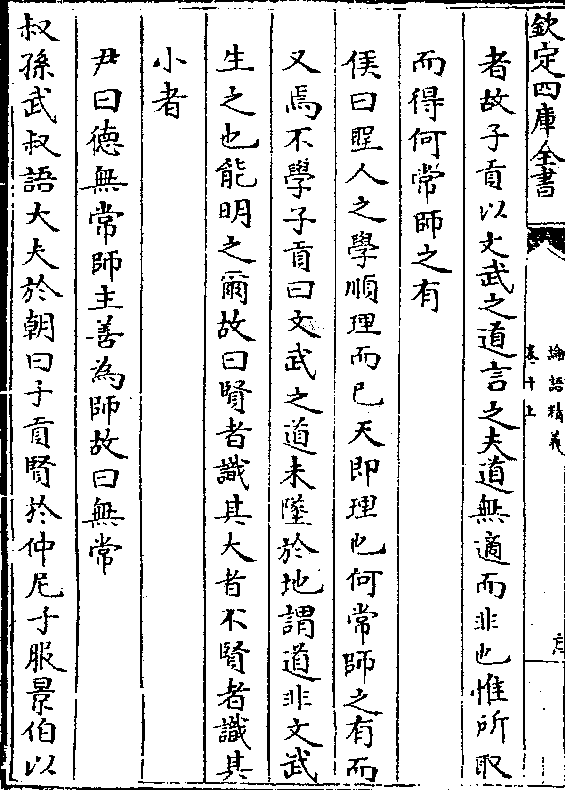 欽定四庫全書
論語精義
卷十上
者故子貢以文武之道言之夫道無適而非也惟所取
而得何常師之有
侯曰聖人之學順理而已天即理也何常師之有而
又焉不學子貢曰文武之道未墜於地謂道非文武
生之也能明之爾故曰賢者識其大者不賢者識其
小者
尹曰德無常師主善為師故曰無常
叔孫武叔語大夫於朝曰子貢賢於仲尼子服景伯以